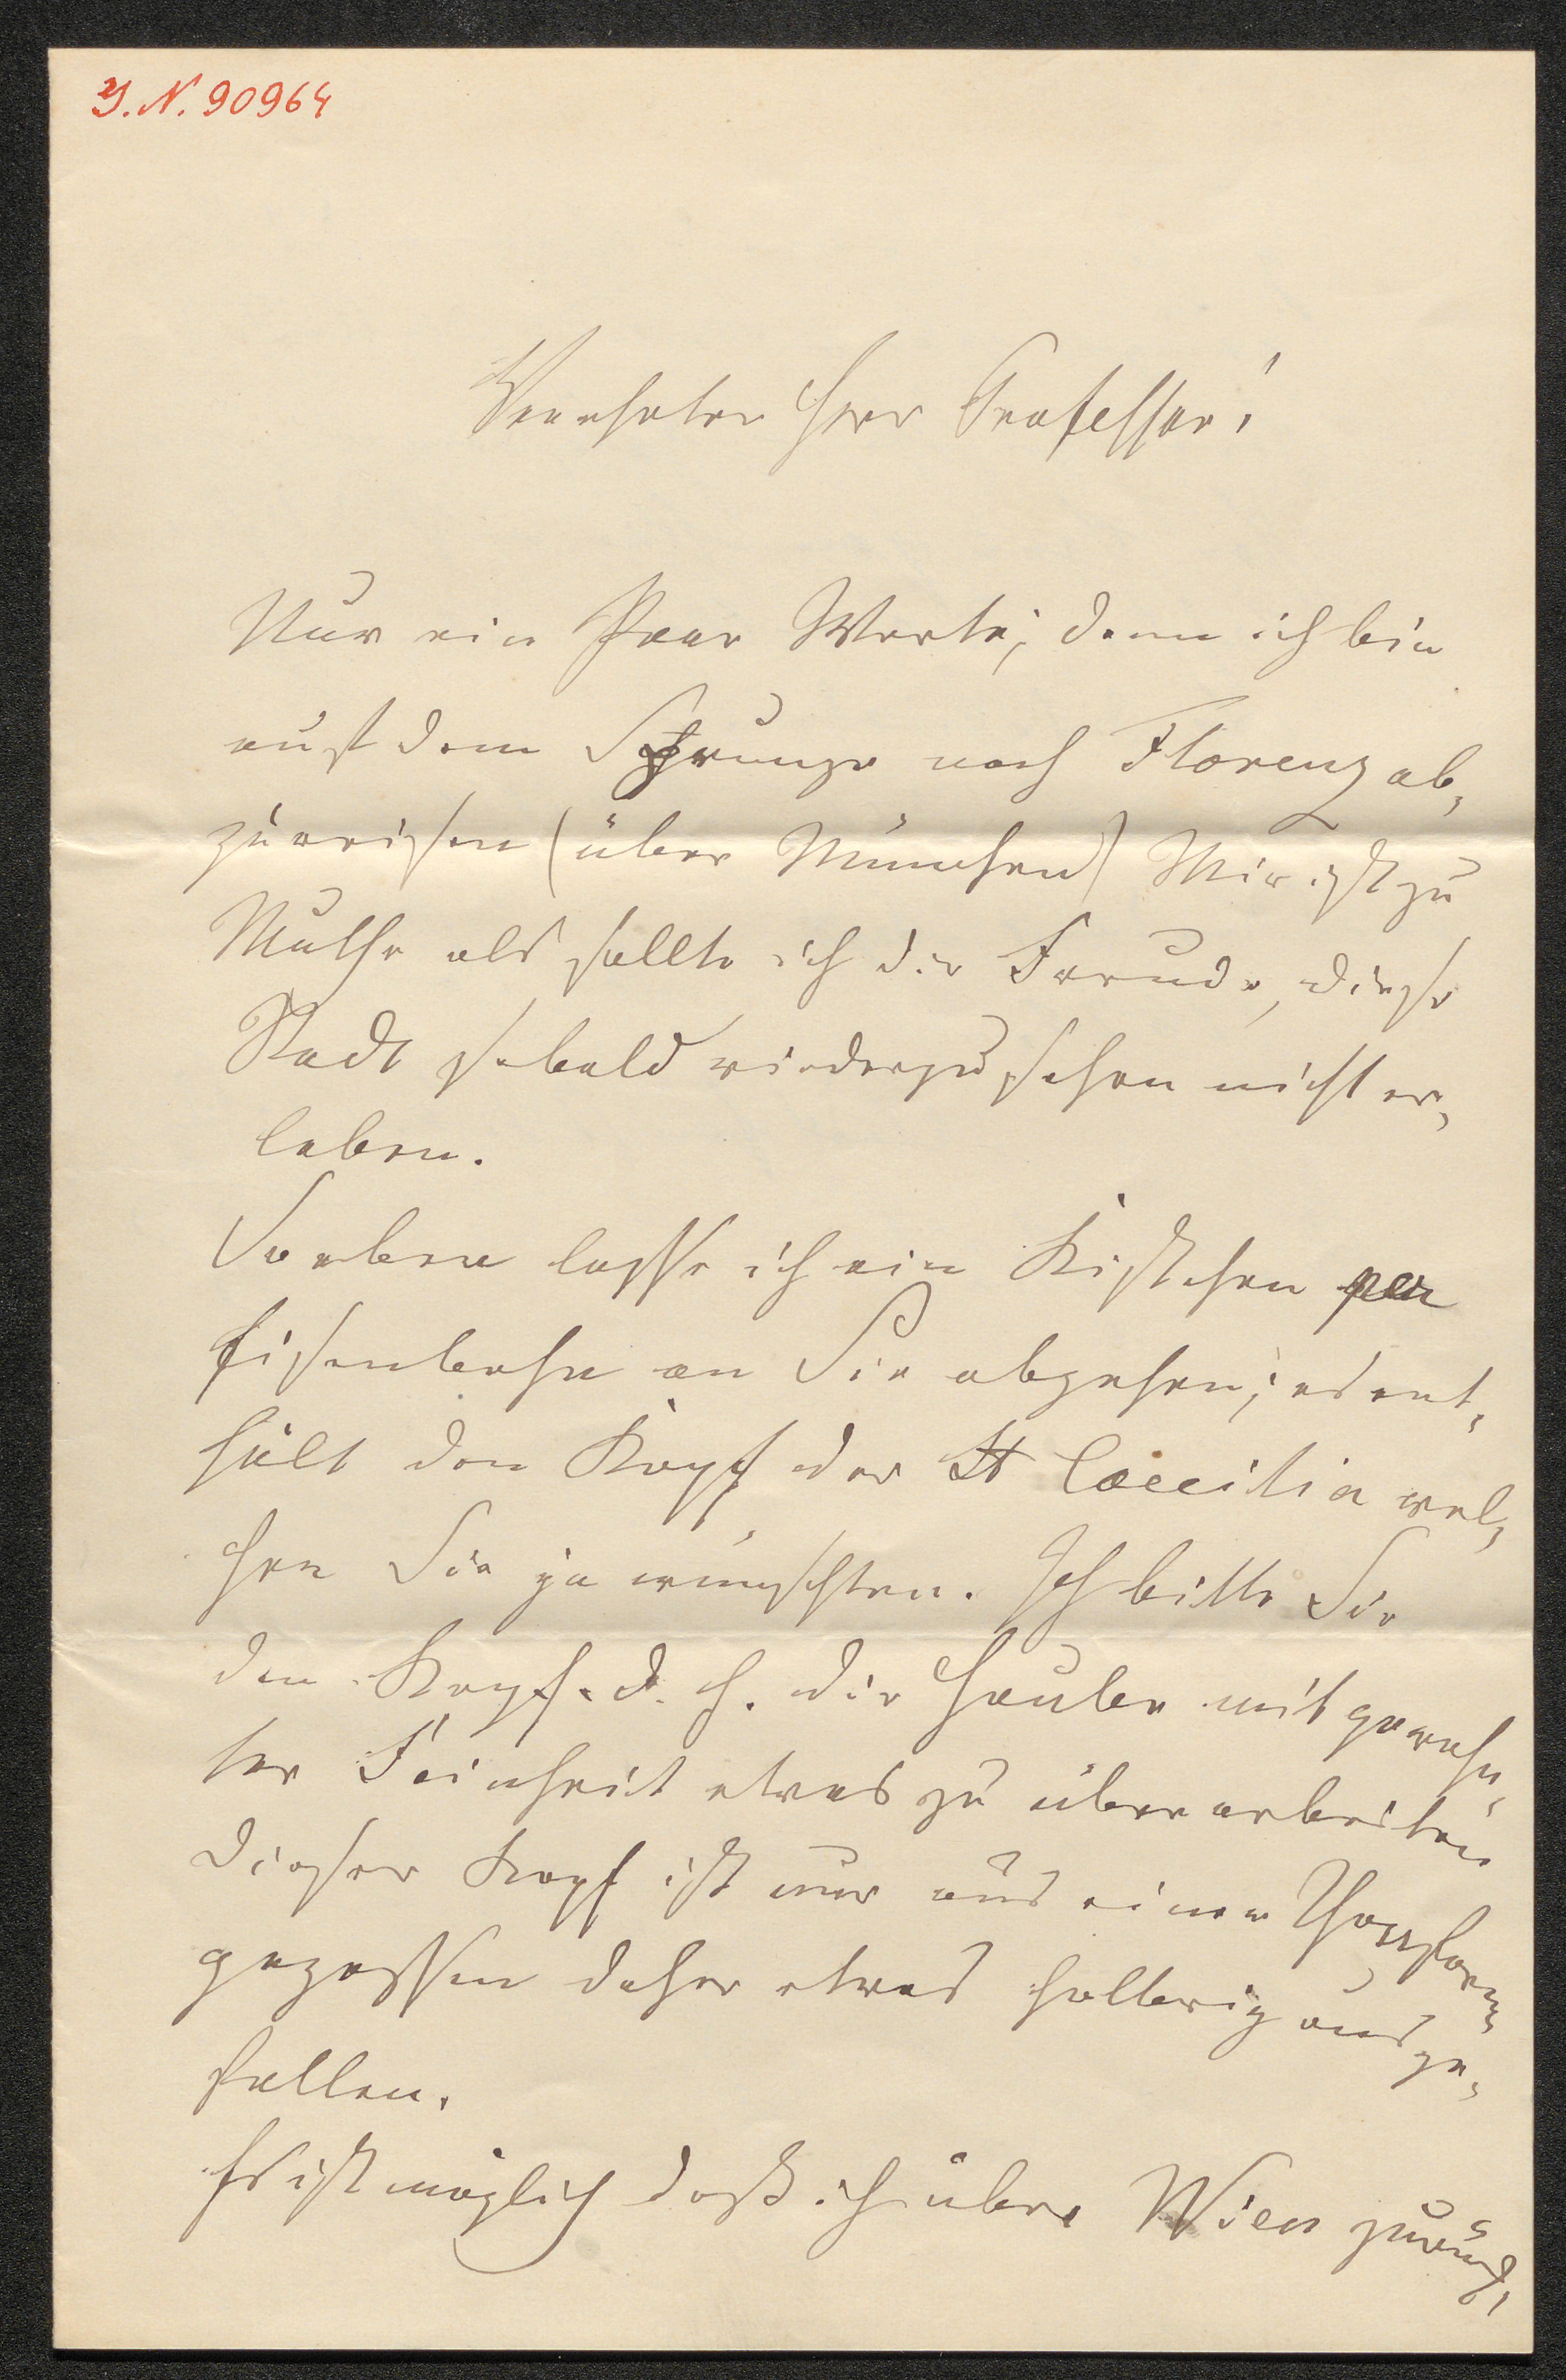 I. N. 90964
Verehrter Herr Professor!
Nur ein Paar Worte; denn ich bin
auf dem Sprunge nach Florenz ab,
zureisen (über München) Mir ist zu
Muthe als sollte ich die Freude, diese
Stadt sobald wiederzusehen nicht er,
leben.
Soeben lasse ich ein Kistchen per
Eisenbahn an Sie abgehen; es ent,
hält den Kopf der St Caecilia wel,
chen Sie ja wünschten. Ich bitte Sie
den Kopf. d. h. die Haube mit gewohn,
ter Feinheit etwas zu überarbeiten
dieser Kopf ist nur aus einer Thonform
gegossen daher etwas holterig ausge,
fallen.
Es ist möglich daß ich über Wien zurück,